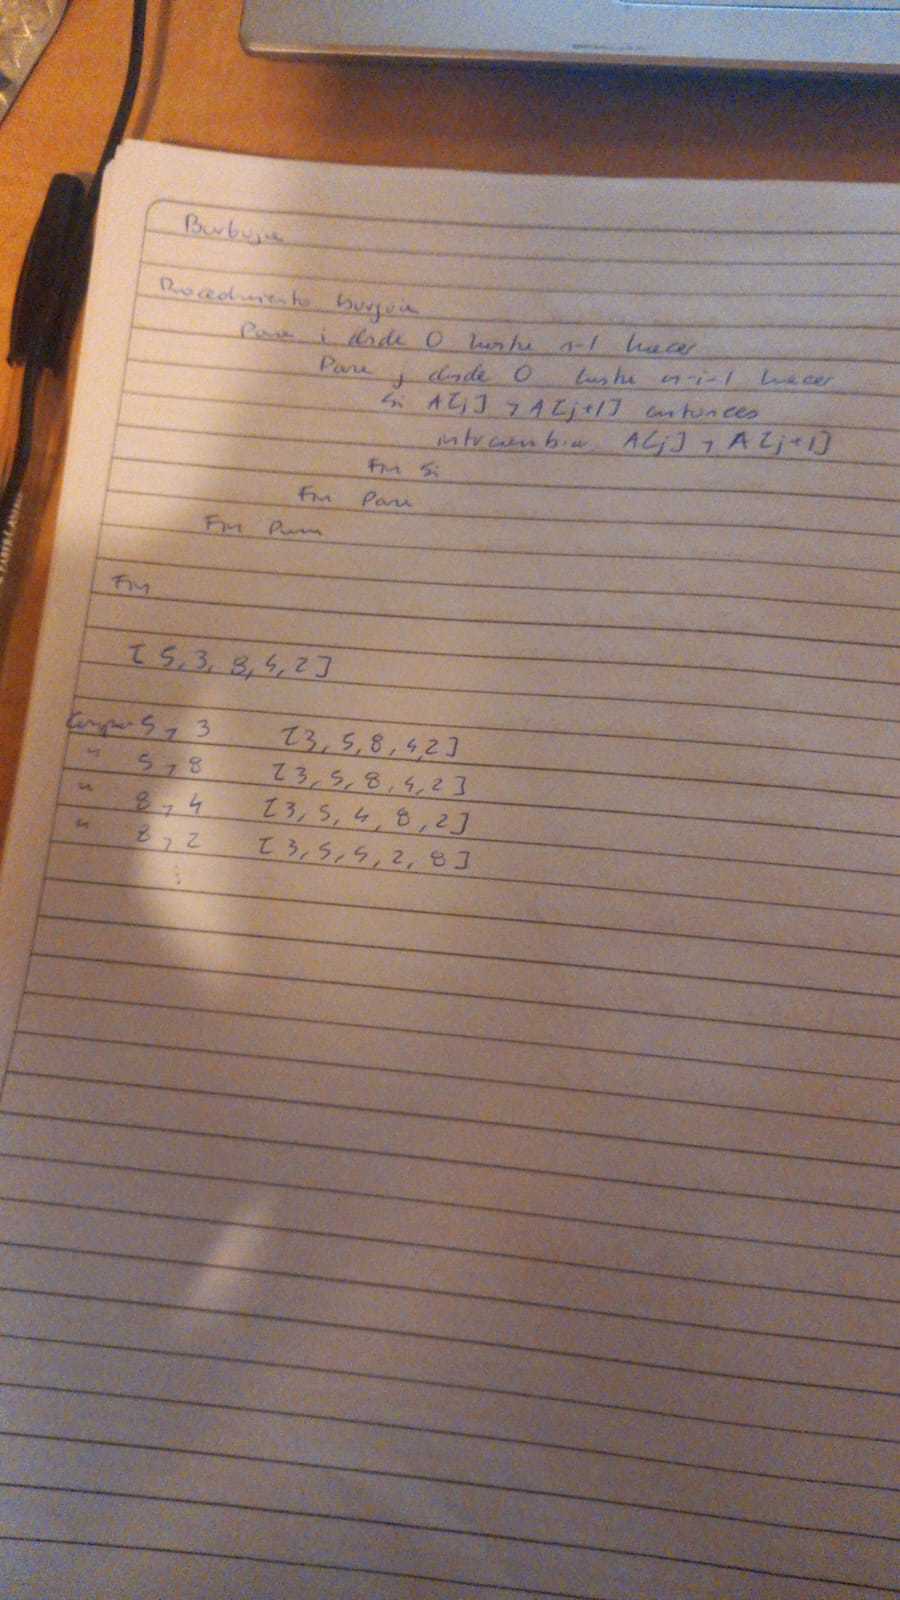 Burbuja
Procedimiento burguja
Para i desde 0 hasta n-1 hacer
Para j desde 0 hasta n-i-1 hacer
Si A[j] > A[j+1] entonces
intercambiar A[j] y A[j+1]
Fin Si
Fin Para
Fin Para
Fin
[5, 3, 8, 4, 2]
Compara 5 y 3 [3, 5, 8, 4, 2]
" 5 y 8 [3, 5, 8, 4, 2]
" 8 y 4 [3, 5, 4, 8, 2]
" 8 y 2 [3, 5, 4, 2, 8]
⋮